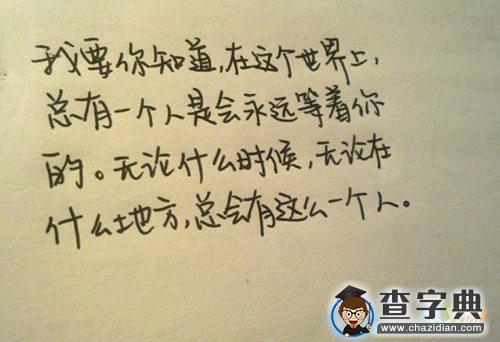 我要你知道,在这个世界上,
总有一个人是会永远等着你
的。无论什么时候,无论在
什么地方,总会有这么一个人。
查字典
www.chazidian.com